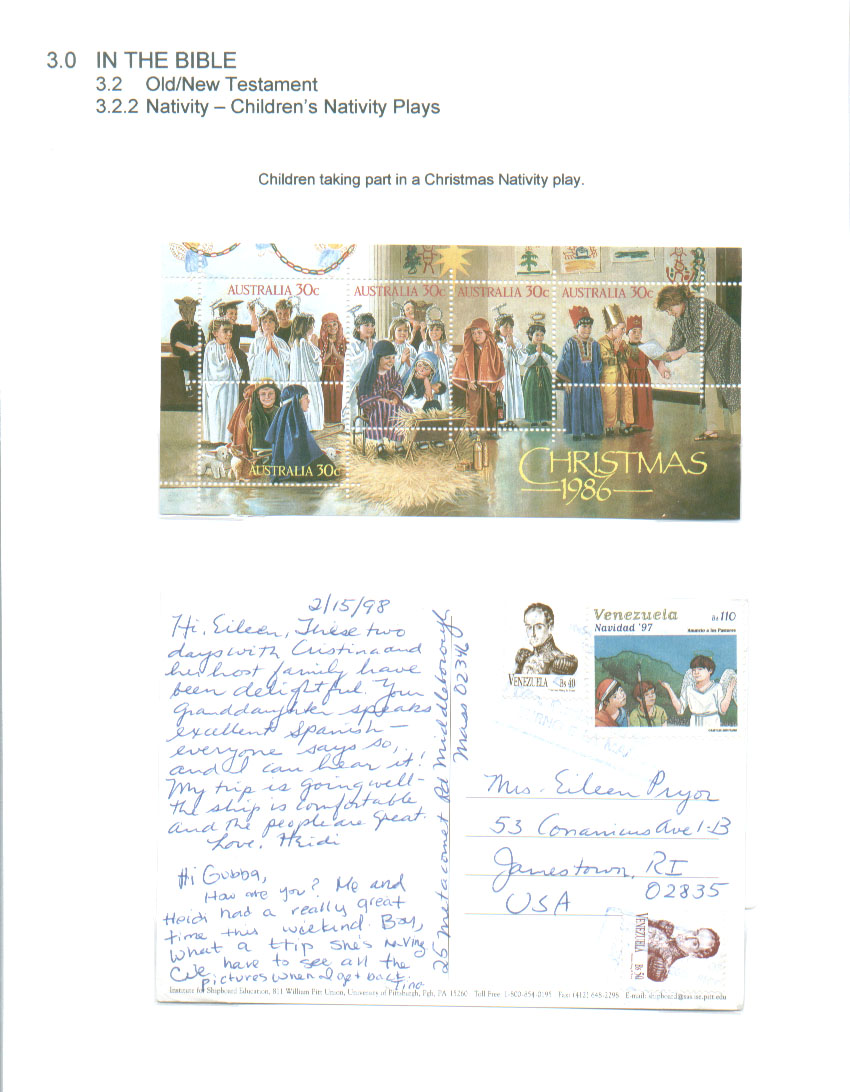 3.0 IN THE BIBLE
3.2 Old/New Testament
3.2.2 Nativity – Children's Nativity Plays
Children taking part in a Christmas Nativity play.
AUSTRALIA 30c
AUSTRALIA 30c
AUSTRALIA 30c
AUSTRALIA 30c
AUSTRALIA 30c
CHRISTMAS
1986
2/15/98
Hi, Eileen, These two
days with Cristina and
her host family have
been delightful. Your
granddaughter speaks
excellent Spanish –
everyone says so,
and I can hear it!
My trip is going well –
the ship is comfortable
and the people are great.
Love, Heidi
Hi Gubba,
How are you? Me and
Heidi had a really great
time this weekend. Boy,
what a trip she's having
We have to see all the
pictures when I get back.
Tina
25 Metacomet Rd Middleborough
Mass 02346
VENEZUELA Bs 40
Venezuela Bs 110
Navidad '97 Anuncio a los Pastores
Mrs. Eileen Pryor
53 Conanicus Ave 1-B
Jamestown, RI
02835
USA
VENEZUELA Bs
Institute for Shipboard Education, 811 William Pitt Union, University of Pittsburgh, Pgh, PA 15260 Toll Free: 1-800-854-0195 Fax: (412) 648-2298 E-mail: shipboard@sas.ise.pitt.edu